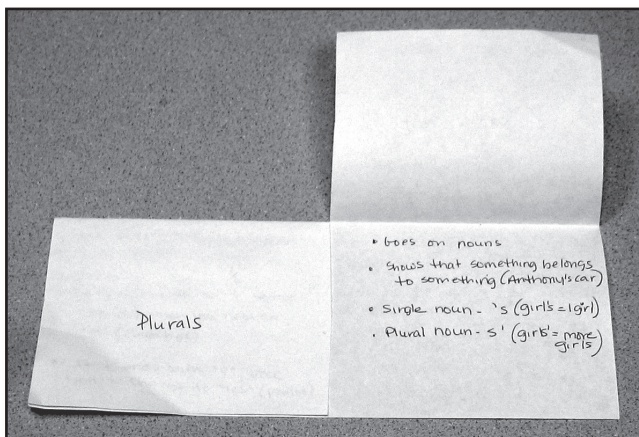 Plurals
• Goes on nouns
• Shows that something belongs
to something (Anthony's car)
• Single noun - 's (girl's = 1 girl)
• Plural noun - s' (girls' = more
girls)